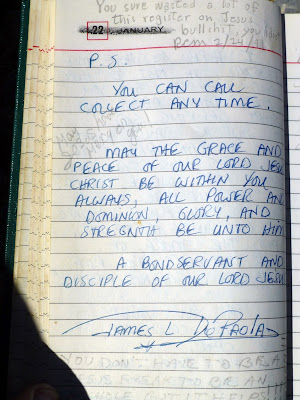 You sure wasted a lot of
this register on Jesus
bullshit, you
PCM 2/24/
22 JANUARY
P.S.
YOU CAN CALL
COLLECT ANY TIME.
MAY THE GRACE AND
PEACE OF OUR LORD JESU
CHRIST BE WITHIN YOU
ALWAYS, ALL POWER AN
DOMINION, GLORY, AND
STREGNTH BE UNTO HIM
A BONDSERVANT AND
DISCIPLE OF OUR LORD JESU
JAMES L DePAOLA
YOU DON'T HAVE TO BE A
FREAK TO BE AN
BUT IT HELPS!!!